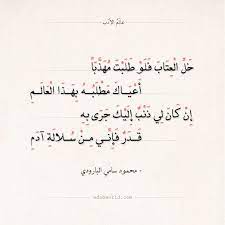 عالم الأدب
خَلِّ العِتَابَ فَلَوْ طَلَبْتَ مُهَذَّبَاً
أَعْيَاكَ مَطْلَبُهُ بِهَذَا العَالَمِ
إِنْ كَانَ لِي ذَنْبٌ إِلَيْكَ جَرَى بِهِ
قَدَرٌ فَإِنِّي مِنْ سُلَالَةِ آدَمِ
- محمود سامي البارودي
adabworld.com